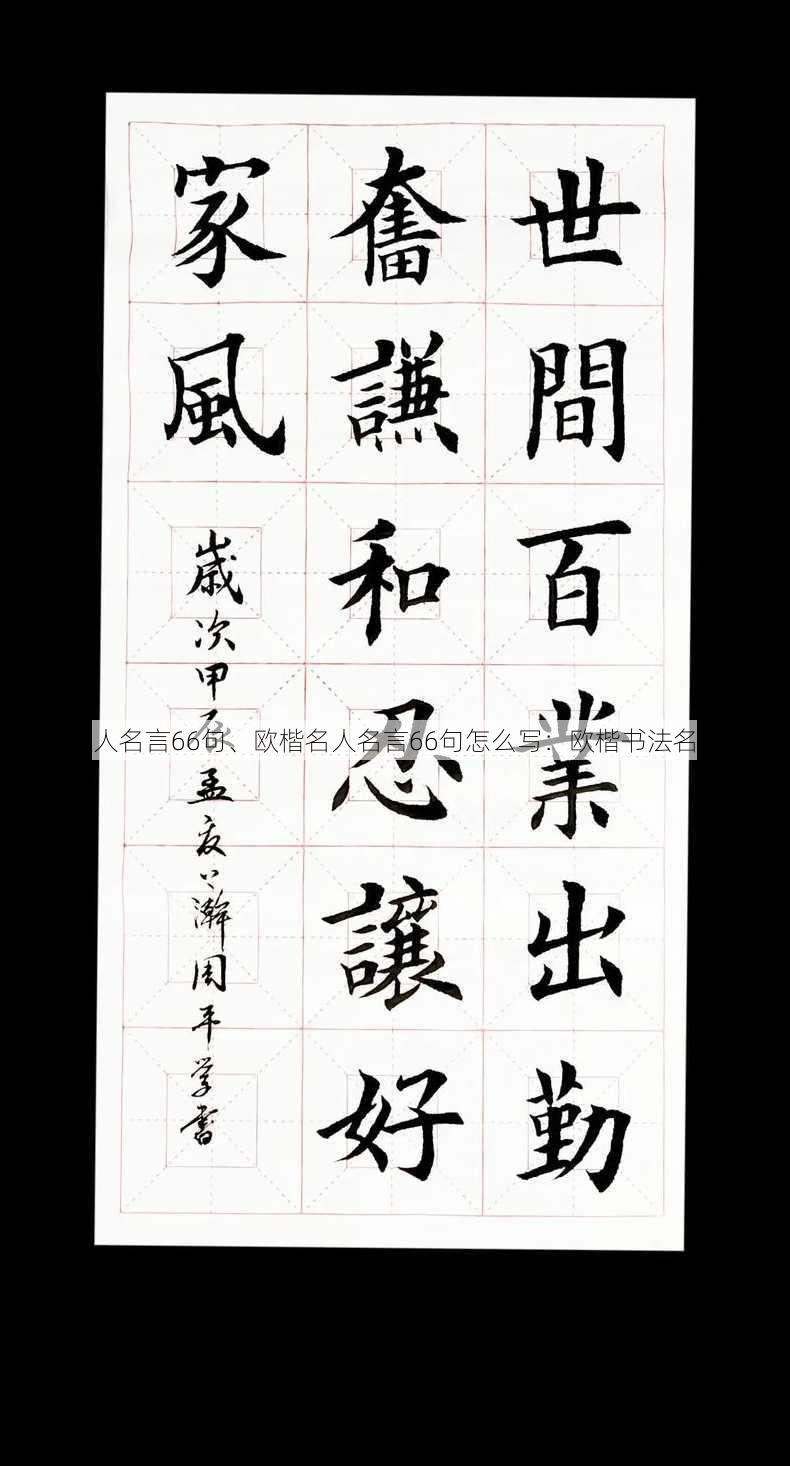 世間百業出勤
奮謙和忍讓好
家風
歲次甲辰孟夏上澣周平学書
人名言66句、欧楷名人名言66句怎么写：欧楷书法名